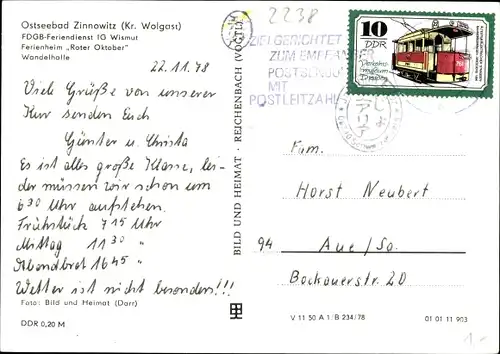 Ostseebad Zinnowitz (Kr. Wolgast)
FDGB-Feriendienst IG Wismut
Ferienheim „Roter Oktober"
Wandelhalle
22.11.78
Viele Grüße von unserer
Kur senden Euch
Günter u. Christa
Es ist alles große Klasse, lei-
der müssen wir schon um
6 30 Uhr aufstehen.
Frühstück 7 15 Uhr
Mittag 11 30 "
Abendbrot 16 45 "
Wetter ist nicht besonders!!!
Foto: Bild und Heimat (Darr)
DDR 0,20 M
BILD UND HEIMAT · REICHENBACH (VOGTL)
2238
ZIELGERICHTET
ZUM EMPFÄNGER
POSTSENDUNGEN
MIT
POSTLEITZAHL
10
DDR
Verkehrs-
museum
Dresden
Fam.
Horst Neubert
94 Aue/Sa.
Bockauerstr. 20
V 11 50 A 1/B 234/78
01 01 11 903
1.-